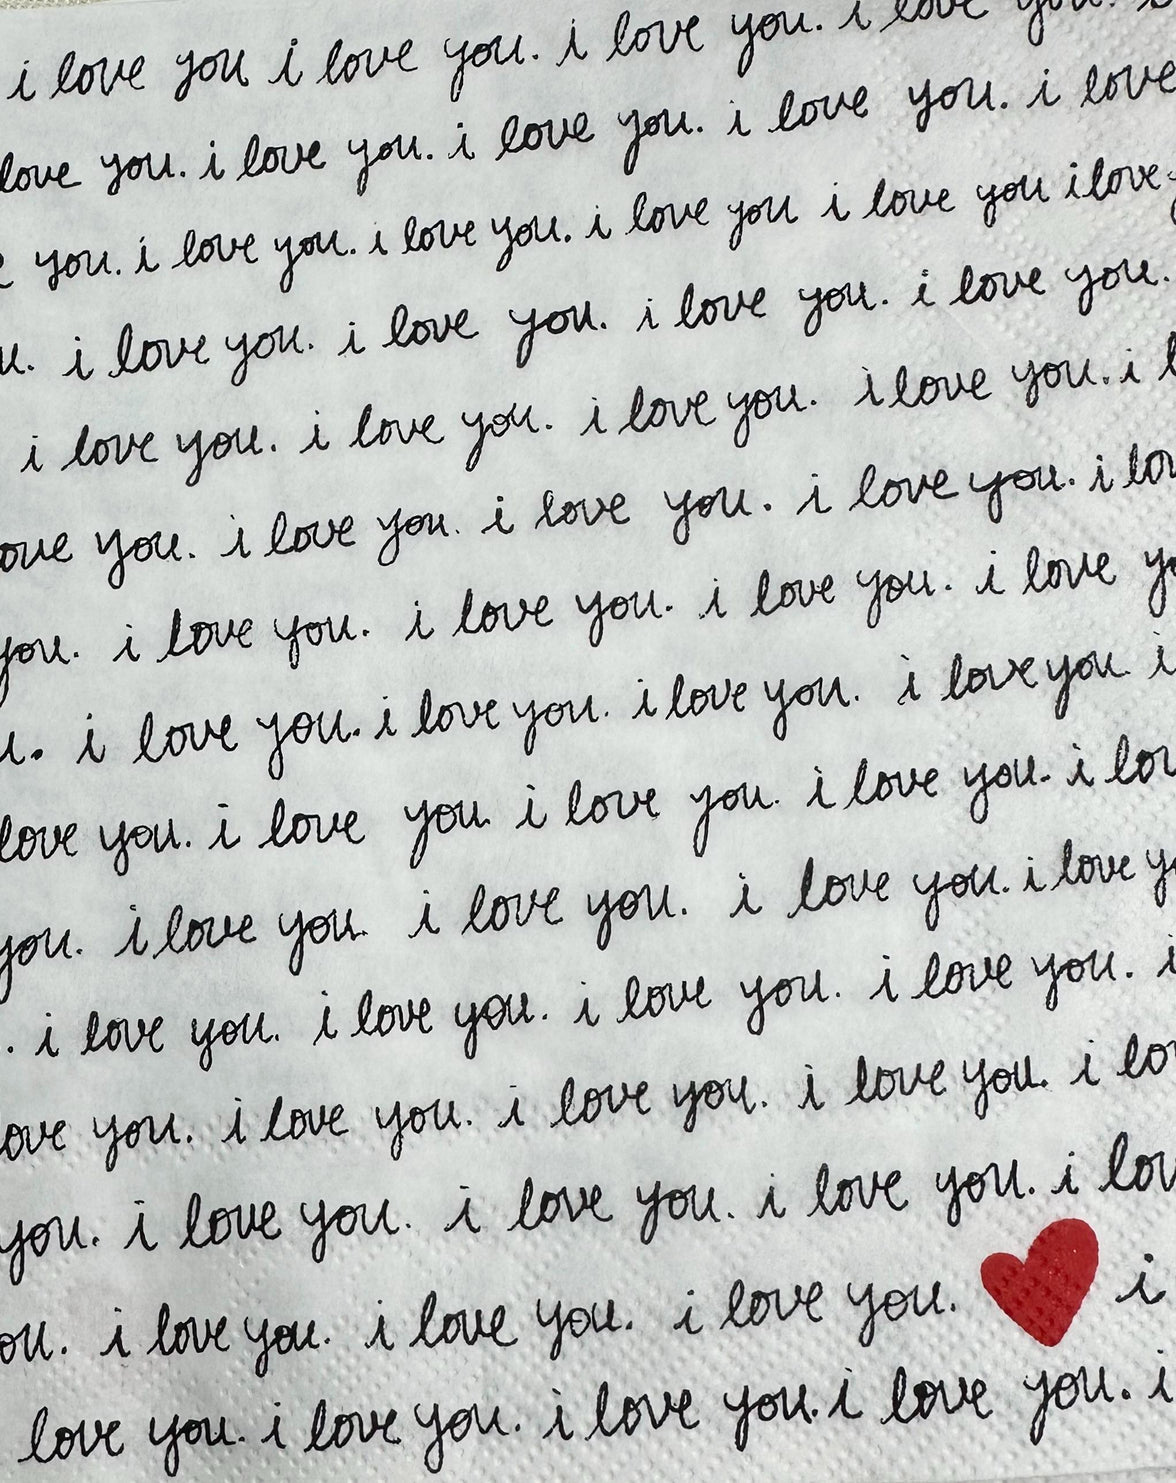 i love you i love you. i love you. i love you. i
love you. i love you. i love you. i love you. i love
you. i love you. i love you. i love you i love you i love
u. i love you. i love you. i love you. i love you.
i love you. i love you. i love you. i love you. i l
ove you. i love you. i love you. i love you. i lov
you. i love you. i love you. i love you. i love y
u. i love you. i love you. i love you. i love you. i
love you. i love you. i love you. i love you. i lov
you. i love you. i love you. i love you. i love y
. i love you. i love you. i love you. i love you. i
ove you. i love you. i love you. i love you. i lo
you. i love you. i love you. i love you. i lov
ou. i love you. i love you. i love you. i
love you. i love you. i love you. i love you. i